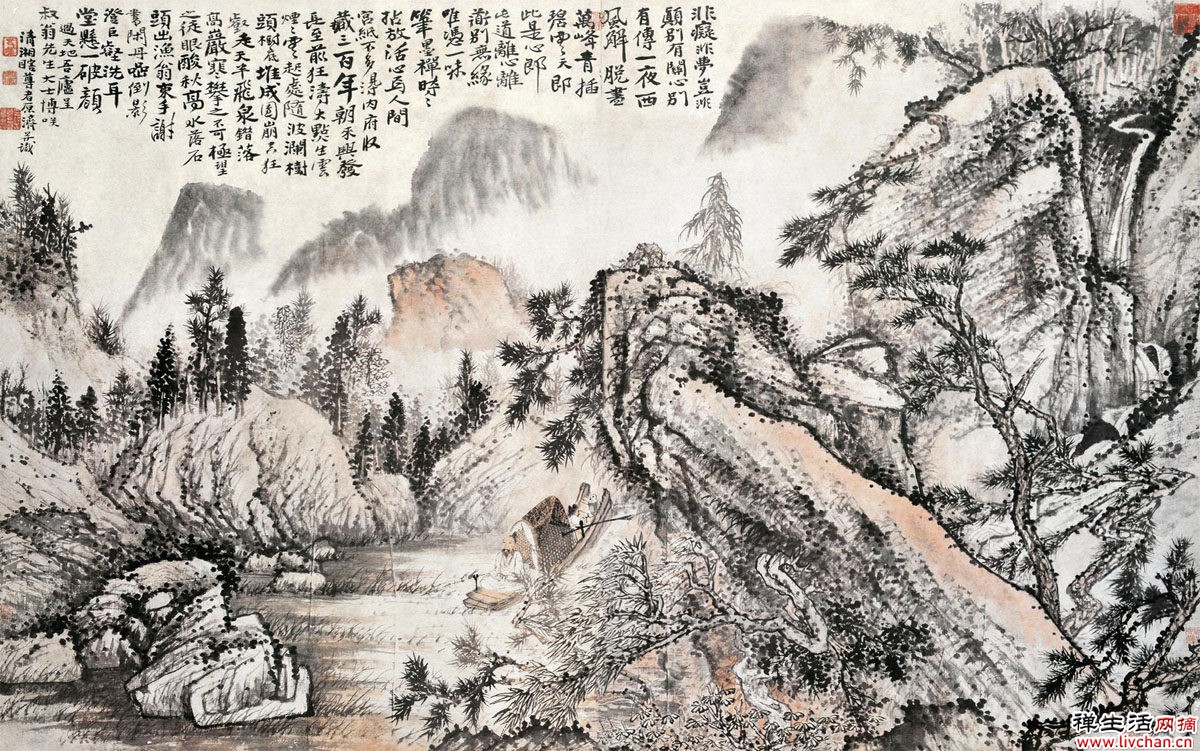 非癡非夢豈非
顛別有關心別
有傳一夜西
風解脫盡
萬峰青插
碧雲天即
此是心即
此道離心離
道別無緣
唯憑一味
筆墨禪時時
拈放活心焉人間
宮紙不多得內府收
藏三百年朝來興發
長至前狂濤大點生雲
煙煙雲起處隨波瀾樹
頭樹底堆成團崩空狂
壑走天半飛泉錯落
高巖寒攀之不可極望
之徒眼酸秋高水落石
頭出漁翁束手謝
書閑丹崖倒影
澄巨壑洗耳
堂懸一破顏
過天地吾廬呈
叔翁先生大士博咲
清湘瞎尊者原濟并識
禅生活网摘
www.livchan.cn